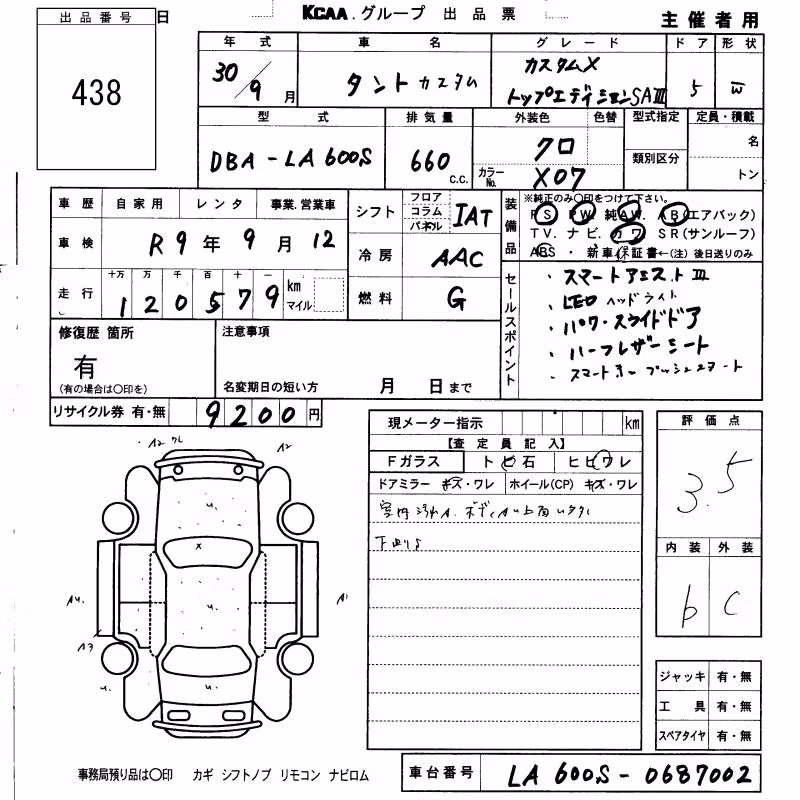 出品番号 日 KCAA.グループ 出品票 主催者用
438
年式 車名 グレード ドア 形状
30/9月 タントカスタム カスタムX トップエディションSAⅢ 5 W
型式 排気量 外装色 色替 型式指定 定員・積載
DBA-LA600S 660 c.c. クロ 類別区分 名
カラーNo. X07 トン
車歴 自家用 レンタ 事業.営業車
シフト フロア コラム パネル IAT
装備品 ※純正のみ〇印をつけて下さい。
PS PW. 純AW. AB(エアバック)
TV. ナビ. カワ SR(サンルーフ)
ABS ・ 新車保証書←(注) 後日送りのみ
車検 R9年9月12
冷房 AAC
走行 十万 万 千 百 十 一
120579 km マイル
燃料 G
セールスポイント
・スマートアシストⅢ
・LEDヘッドライト
・パワースライドドア
・ハーフレザーシート
・スマートキー プッシュスタート
修復歴 箇所 注意事項
有
(有の場合は〇印を) 名変期日の短い方 月 日まで
リサイクル券 有・無 9200円
現メーター指示 km
【査定員記入】
Fガラス トビ石 ヒビワレ
ドアミラー キズ・ワレ ホイール(CP) キズ・ワレ
室内汚れ.
下回りS
評価点
3.5
内装 外装
b C
A2 ワレ A2
U.
x
U.
A4. A1
A3
U. U.
ジャッキ 有・無
工具 有・無
スペアタイヤ 有・無
事務局預り品は〇印 カギ シフトノブ リモコン ナビロム
車台番号 LA600S-0687002